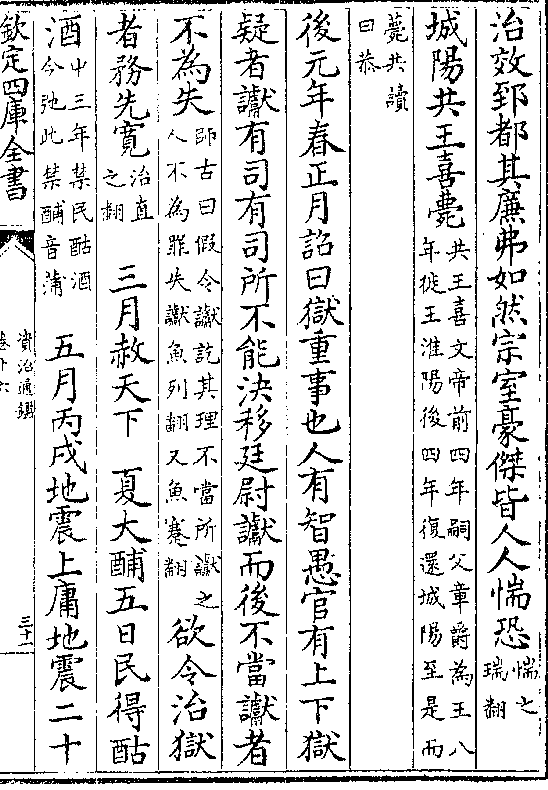 治效郅都其廉弗如然宗室豪傑皆人人惴恐惴之瑞翻
城陽共王喜薨共王喜文帝前四年嗣父章爵為王八年徙王淮陽後四年復還城陽至是而
薨共讀曰恭
後元年春正月詔曰獄重事也人有智愚官有上下獄
疑者讞有司有司所不能決移廷尉讞而後不當讞者
不為失師古曰假令讞訖其理不當所讞之人不為罪失讞魚列翻又魚蹇翻欲令治獄
者務先寛治直之翻 三月赦天下 夏大酺五日民得酤
酒中三年禁民酤酒今弛此禁酺音蒲 五月丙戌地震上庸地震二十
欽定四庫全書
資治通鑑
卷十六
三十一